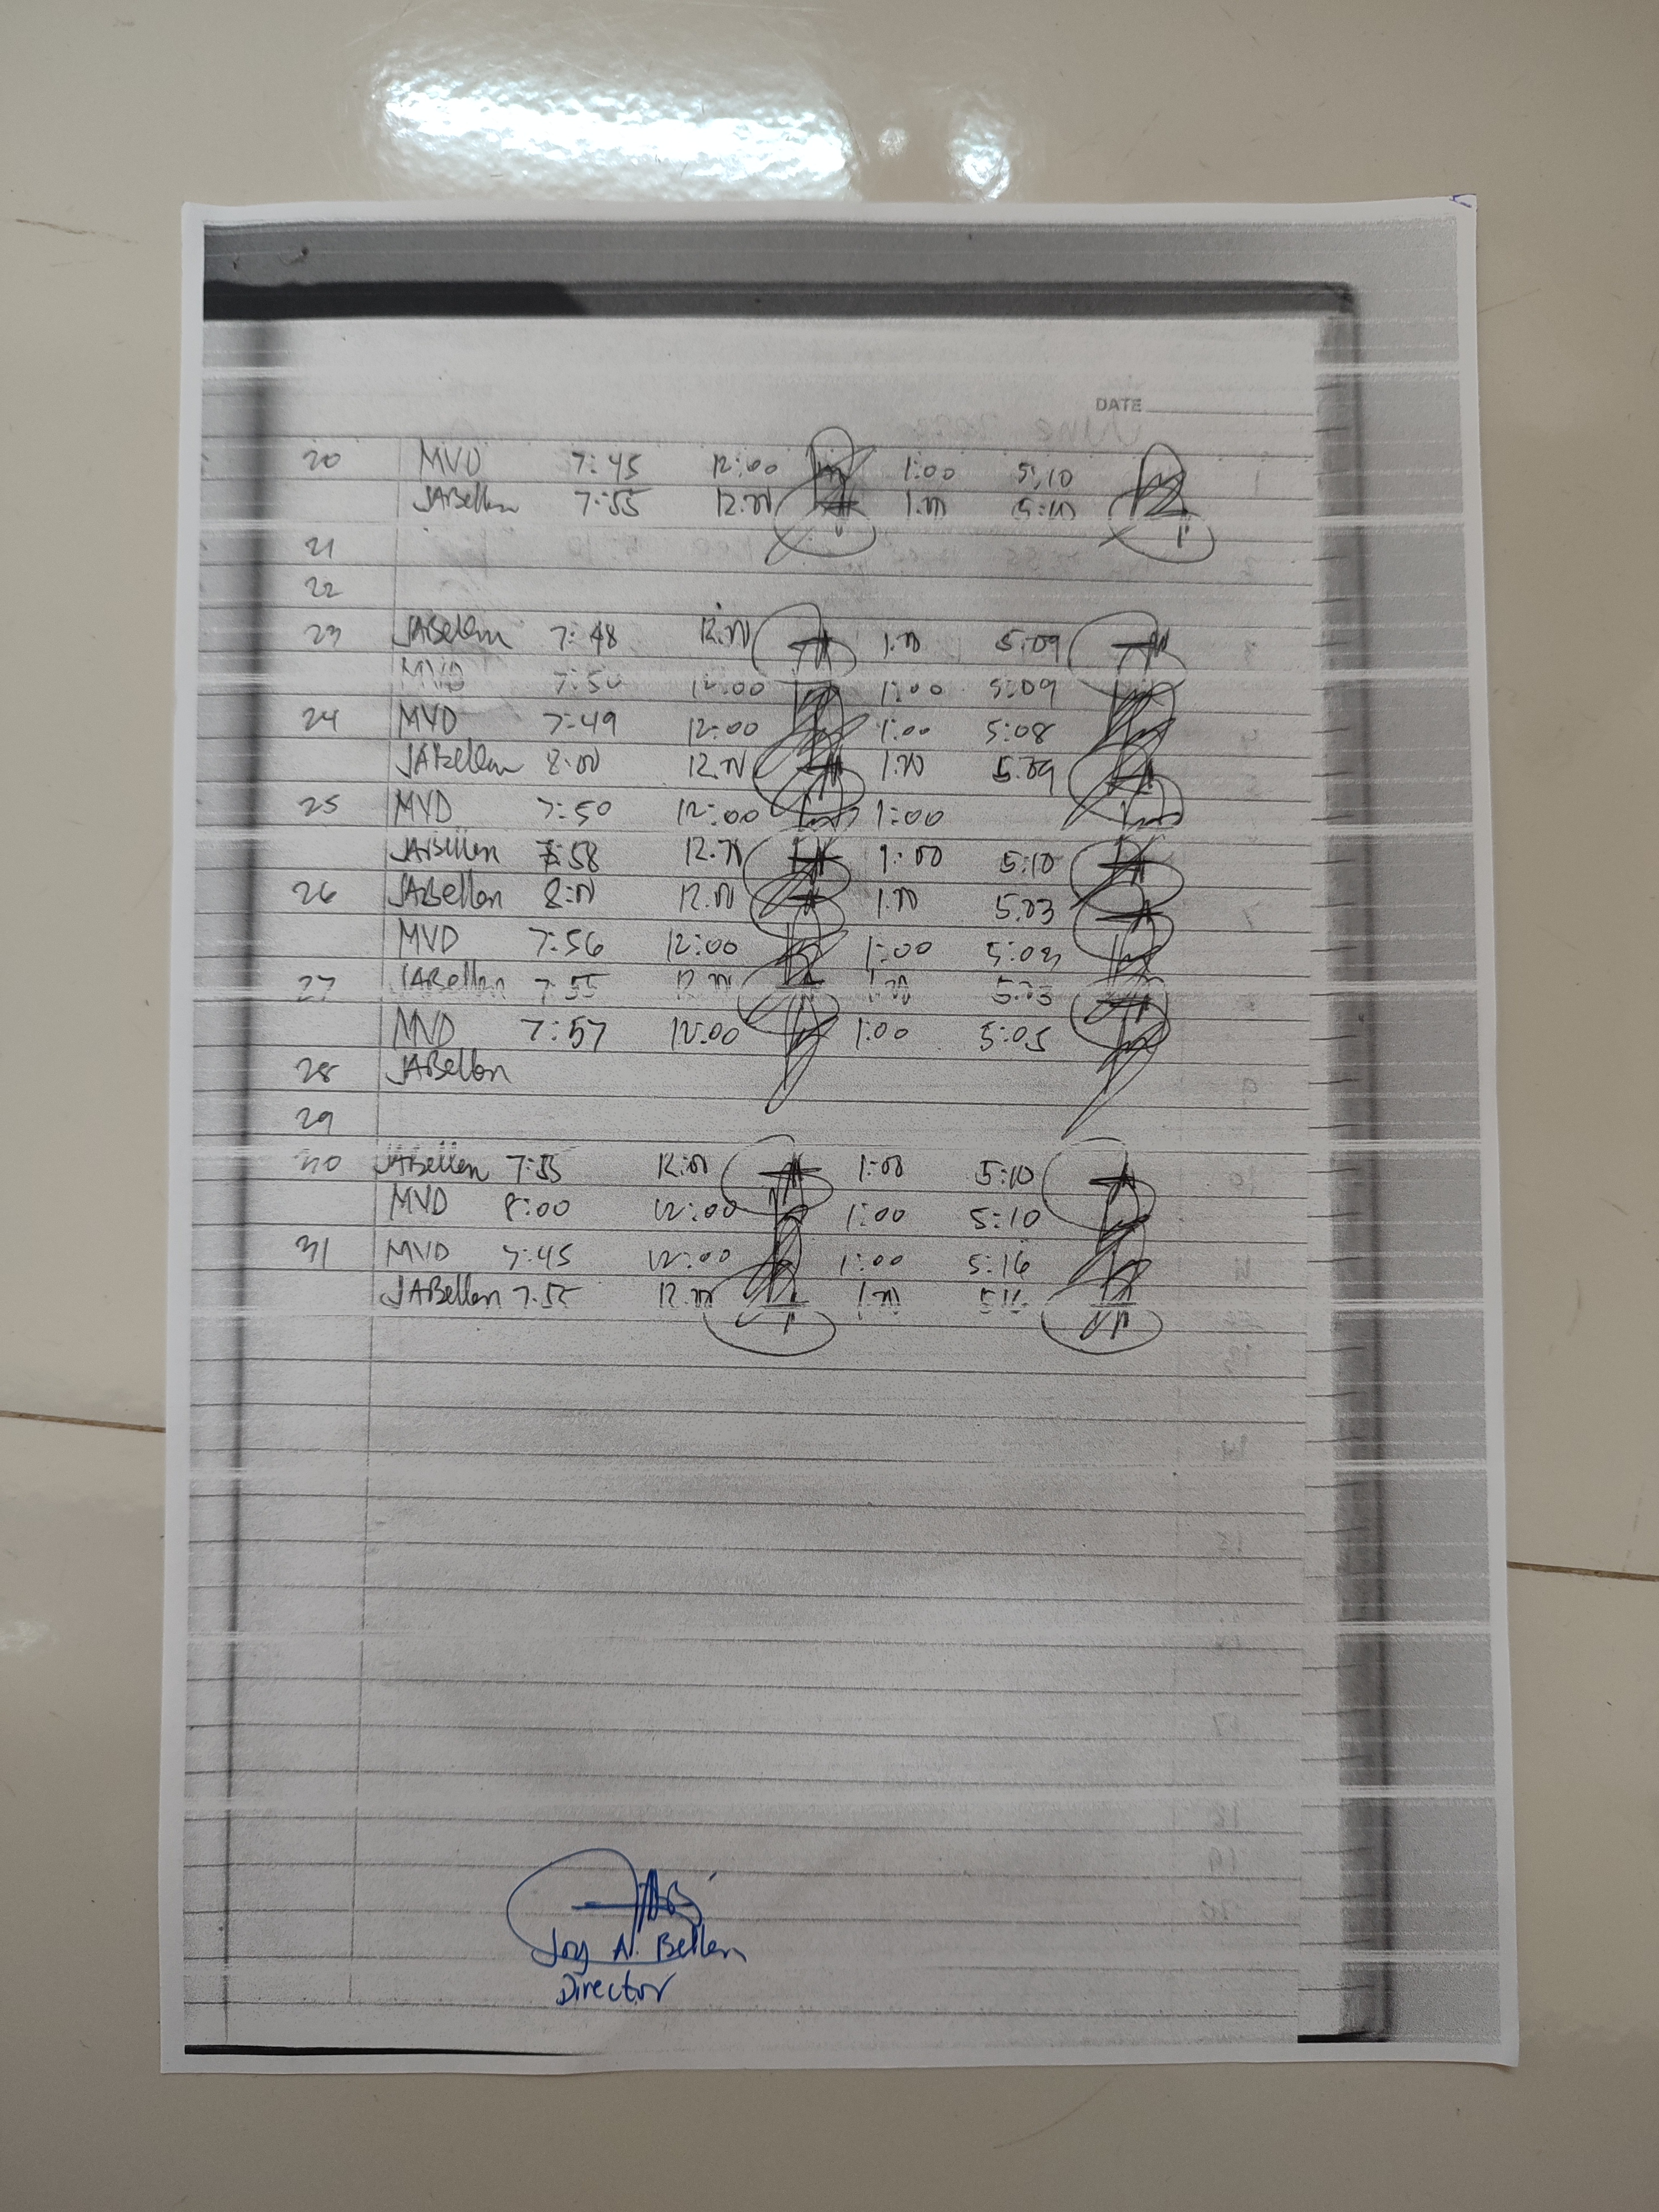 DATE
20 MVD 7:45 12:00 1:00 5:10
JABellen 7:55 12:00 1:00 5:10
21
22
23 JABellen 7:48 12:00 1:00 5:09
MVD 7:50 12:00 1:00 5:09
24 MVD 7:49 12:00 1:00 5:08
JABellen 8:00 12:00 1:00 5:09
25 MVD 7:50 12:00 1:00
JABellen 7:58 12:00 1:00 5:10
26 JABellen 8:00 12:00 1:00 5:03
MVD 7:56 12:00 1:00 5:03
27 JABellen 7:55 12:00 1:00 5:03
MVD 7:57 12:00 1:00 5:05
28 JABellen
29
30 JABellen 7:55 12:00 1:00 5:10
MVD 8:00 12:00 1:00 5:10
31 MVD 7:45 12:00 1:00 5:16
JABellen 7:55 12:00 1:00 5:16
Joy A. Bellen
Director